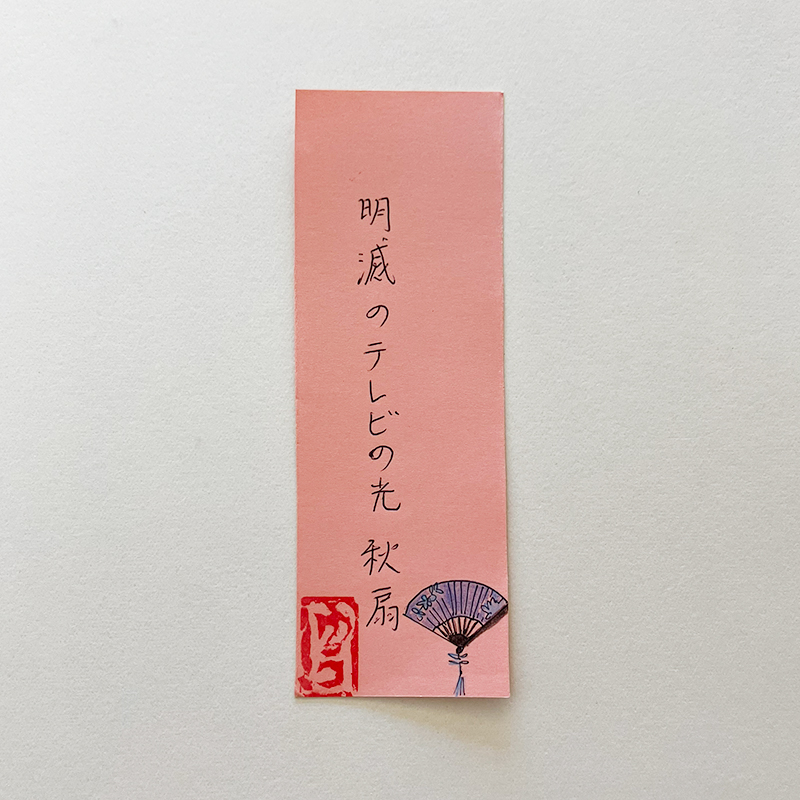 明滅のテレビの光 秋扇